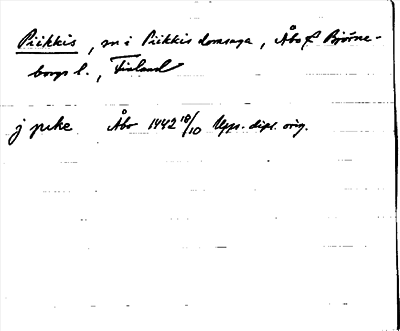 Piikkis, sn i Piikkis domsaga, Åbo & Björne-
borgs l., Finland
j pike Åbo 1442 18/10 Upps. dipl. orig.